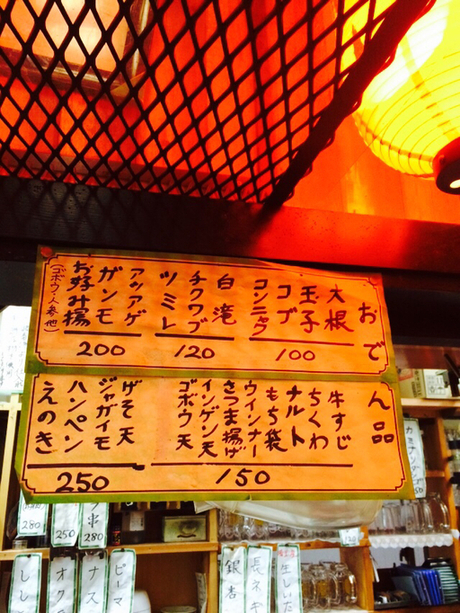 おでん品
大根
玉子
コブ
コンニャク
100
白滝
チクワブ
ツミレ
120
アツアゲ
ガンモ
お好み揚
(ゴボウ・人参他)
200
牛すじ
ちくわ
ナルト
もち袋
ウインナー
さつま揚げ
インゲン天
ゴボウ天
150
げそ天
ジャガイモ
ハンペン
えのき
250
280
250
280
ししと
オク
ナス
ピーマ
銀杏
長ネギ
生しい